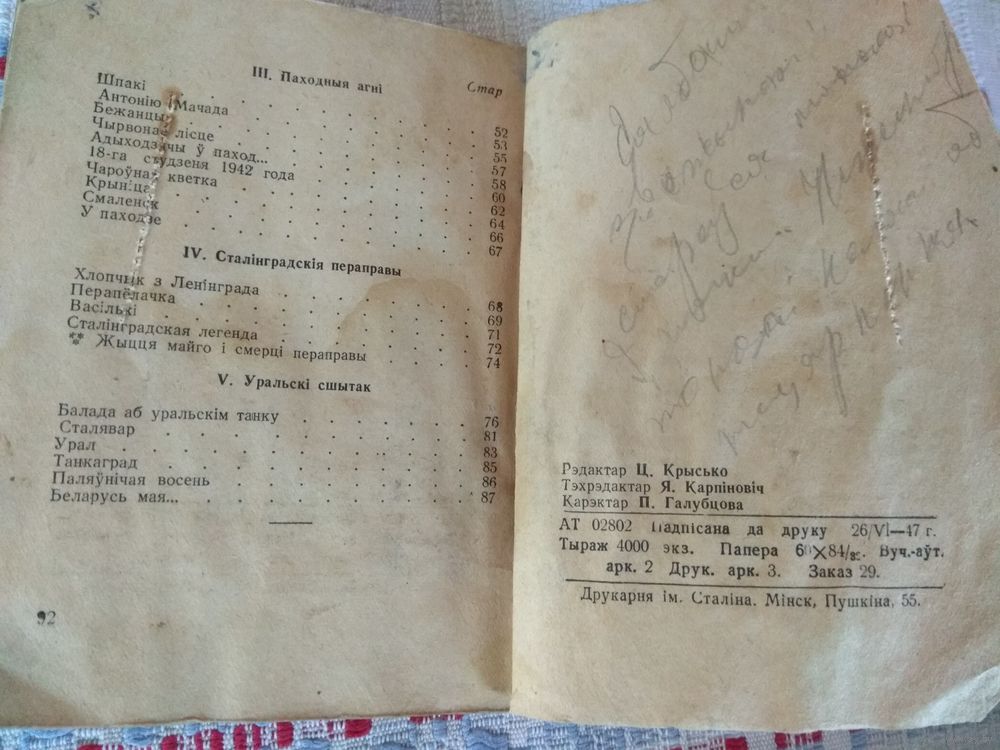 III. Паходныя агні
Стар
Шпакі . . . 52
Антонію Мачада . . . 53
Бежанцы . . . 55
Чырвонае лісце . . . 57
Адыходзячы ў паход... . . . 58
18-га студзеня 1942 года . . . 60
Чароўная кветка . . . 62
Крыніца . . . 64
Смаленск . . . 66
У паходзе . . . 67
IV. Сталінградскія пераправы
Хлопчык з Ленінграда . . . 68
Перапёлачка . . . 69
Васількі . . . 71
Сталінградская легенда . . . 72
*** Жыцця майго і смерці пераправы . . . 74
V. Уральскі сшытак
Балада аб уральскім танку . . . 76
Сталявар . . . 81
Урал . . . 83
Танкаград . . . 85
Паляўнічая восень . . . 86
Беларусь мая... . . . 87
92
Рэдактар Ц. Крысько
Тэхрэдактар Я. Карпіновіч
Карэктар П. Галубцова
АТ 02802 Падпісана да друку 26/VI—47 г.
Тыраж 4000 экз. Папера 60×84/32. Вуч.-аўт.
арк. 2 Друк. арк. 3. Заказ 29.
Друкарня ім. Сталіна. Мінск, Пушкіна, 55.